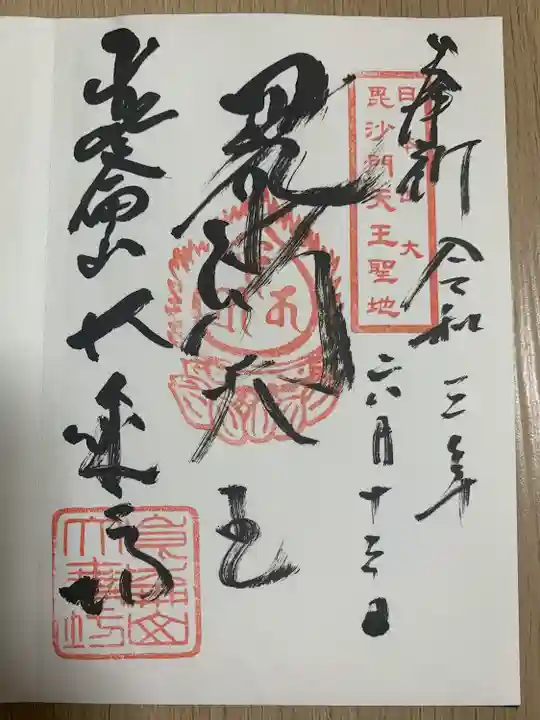 奉拝 令和三年
六月十三日
日本四大
毘沙門天王聖地
毘沙門天王
山大乗坊
大乗坊